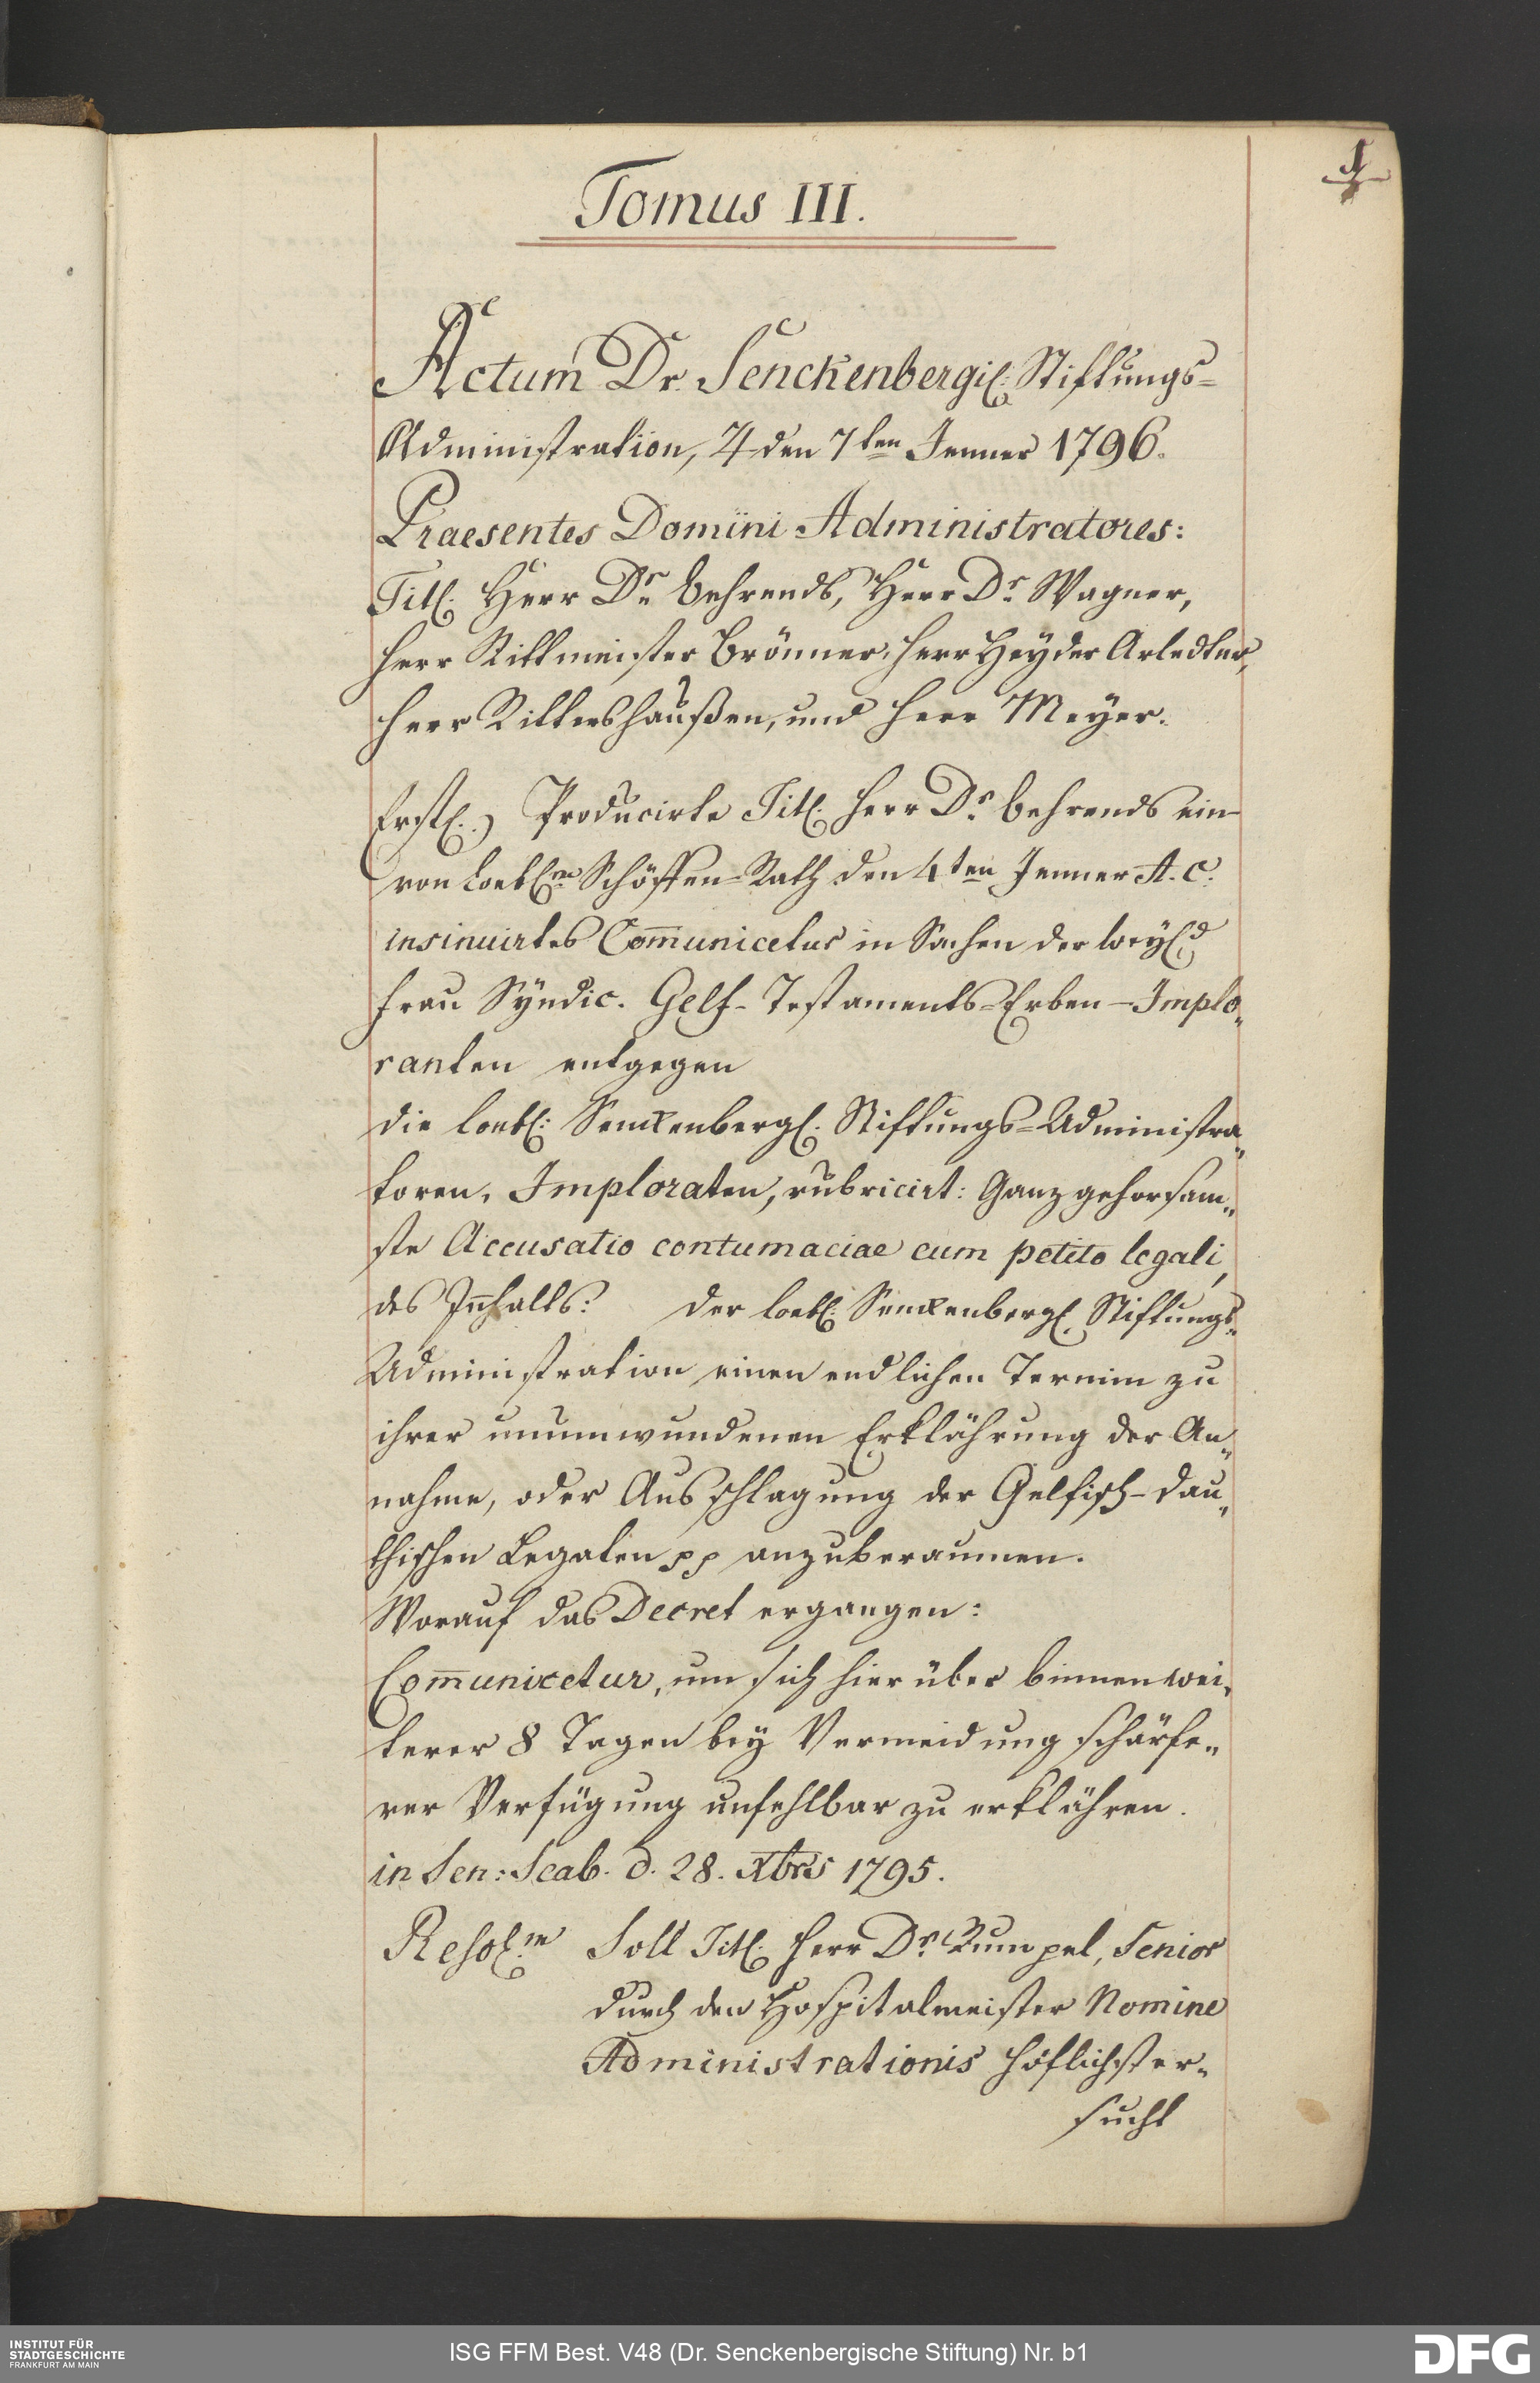 1
Tomus III.
Actum Dr. Senckenbergis: Stiftungs-
Administration, ♃ den 7ten Jenner 1796.
Praesentes Domini Administratores:
Titl. Herr Dr. Behrends, Herr Dr. Wagner,
Herr Rittmeister Brönner, Herr Heyder Arledter,
Herr Rittershaußen, und Herr Meyer.
Erstl.) Producirte Titl. Herr Dr. Behrends ein
von Loebl.en Schöffen-Rath den 4ten Jenner A. C.
insinuirtes Com̄unicetur in Sachen der weyl.d
Frau Syndic. Gelf-Testaments-Erben - Implo„
ranten entgegen
die loebl: Senckenbergl. Stiftungs-Administra„
toren, Imploraten, rubricirt: Ganz gehorsam„
ste Accusatio contumaciae cum petito legali,
des Iñhalts: Der loebl: Senckenbergl. Stiftungs„
Administration einen endlichen Termin zu
ihrer unumwundenen Erklährung der An„
nahme, oder Ausschlagung der Gelfisch-Dau„
thischen Legaten pp anzuberaumen.
Worauf das Decret ergangen:
Com̄unicetur, um sich hierüber binnen wei„
terer 8 Tagen bey Vermeidung schärfe„
rer Verfügung unfehlbar zu erklähren.
in Sen: Scab. d. 28. Xbris 1795.
Resol.m Soll Titl. Herr Dr. Rumpel, Senior
durch den Hospitalmeister Nomine
Administrationis höflichst er„
sucht
INSTITUT FÜR
STADTGESCHICHTE
FRANKFURT AM MAIN
ISG FFM Best. V48 (Dr. Senckenbergische Stiftung) Nr. b1
DFG